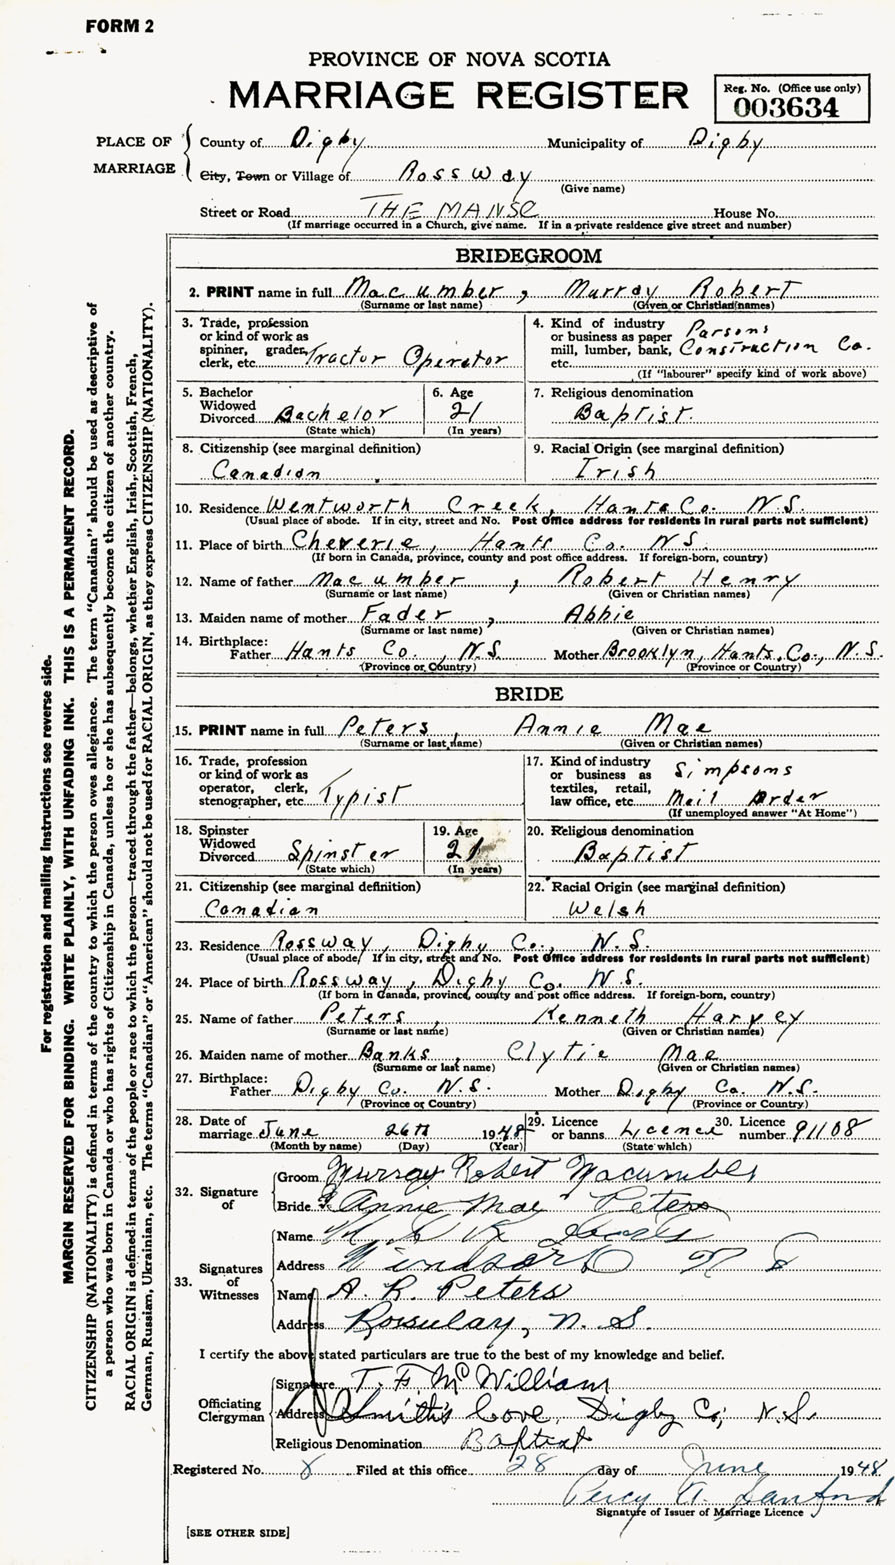 FORM 2
PROVINCE OF NOVA SCOTIA
MARRIAGE REGISTER
Reg. No. (Office use only)
003634
PLACE OF MARRIAGE
County of Digby Municipality of Digby
City, Town or Village of Rossway
(Give name)
Street or Road THE MANSE House No.
(If marriage occurred in a Church, give name. If in a private residence give street and number)
BRIDEGROOM
2. PRINT name in full Macumber, Murray Robert
(Surname or last name) (Given or Christian names)
3. Trade, profession or kind of work as spinner, grader, clerk, etc. Tractor Operator
4. Kind of industry or business as paper mill, lumber, bank, etc. Parsons Construction Co.
(If "labourer" specify kind of work above)
5. Bachelor Widowed Divorced Bachelor
(State which)
6. Age 21
(In years)
7. Religious denomination
Baptist.
8. Citizenship (see marginal definition)
Canadian
9. Racial Origin (see marginal definition)
Irish
10. Residence Wentworth Creek, Hants Co. N.S.
(Usual place of abode. If in city, street and No. Post Office address for residents in rural parts not sufficient)
11. Place of birth Cheverie, Hants Co. N.S.
(If born in Canada, province, county and post office address. If foreign-born, country)
12. Name of father Macumber, Robert Henry
(Surname or last name) (Given or Christian names)
13. Maiden name of mother Fader, Abbie
(Surname or last name) (Given or Christian names)
14. Birthplace:
Father Hants Co., N.S. Mother Brooklyn, Hants, Co., N.S.
(Province or Country) (Province or Country)
BRIDE
15. PRINT name in full Peters, Annie Mae
(Surname or last name) (Given or Christian names)
16. Trade, profession or kind of work as operator, clerk, stenographer, etc. Typist
17. Kind of industry or business as textiles, retail, law office, etc. Simpsons Mail Order
(If unemployed answer "At Home")
18. Spinster Widowed Divorced Spinster
(State which)
19. Age 21
(In years)
20. Religious denomination
Baptist
21. Citizenship (see marginal definition)
Canadian
22. Racial Origin (see marginal definition)
Welsh
23. Residence Rossway, Digby Co., N.S.
(Usual place of abode. If in city, street and No. Post Office address for residents in rural parts not sufficient)
24. Place of birth Rossway, Digby Co. N.S.
(If born in Canada, province, county and post office address. If foreign-born, country)
25. Name of father Peters, Kenneth Harvey
(Surname or last name) (Given or Christian names)
26. Maiden name of mother Banks, Clytie Mae
(Surname or last name) (Given or Christian names)
27. Birthplace:
Father Digby Co. N.S. Mother Digby Co. N.S.
(Province or Country) (Province or Country)
28. Date of marriage June 26th 1948
(Month by name) (Day) (Year)
29. Licence or banns Licence
(State which)
30. Licence number 91108
32. Signature of
Groom Murray Robert Macumber
Bride Annie Mae Peters
33. Signatures of Witnesses
Name
Address Windsor N S
Name A. R. Peters
Address Rossway, N. S.
I certify the above stated particulars are true to the best of my knowledge and belief.
Officiating Clergyman
Signature T. F. McWilliam
Address Smith's Cove, Digby Co; N.S.
Religious Denomination Baptist
Registered No. 8 Filed at this office 28 day of June 1948
Percy
Signature of Issuer of Marriage Licence
[SEE OTHER SIDE]
For registration and mailing instructions see reverse side.
MARGIN RESERVED FOR BINDING. WRITE PLAINLY, WITH UNFADING INK. THIS IS A PERMANENT RECORD.
CITIZENSHIP (NATIONALITY) is defined in terms of the country to which the person owes allegiance. The term "Canadian" should be used as descriptive of
a person who was born in Canada or who has rights of Citizenship in Canada, unless he or she has subsequently become the citizen of another country.
RACIAL ORIGIN is defined in terms of the people or race to which the person—traced through the father—belongs, whether English, Irish, Scottish, French,
German, Russian, Ukrainian, etc. The terms "Canadian" or "American" should not be used for RACIAL ORIGIN, as they express CITIZENSHIP (NATIONALITY).